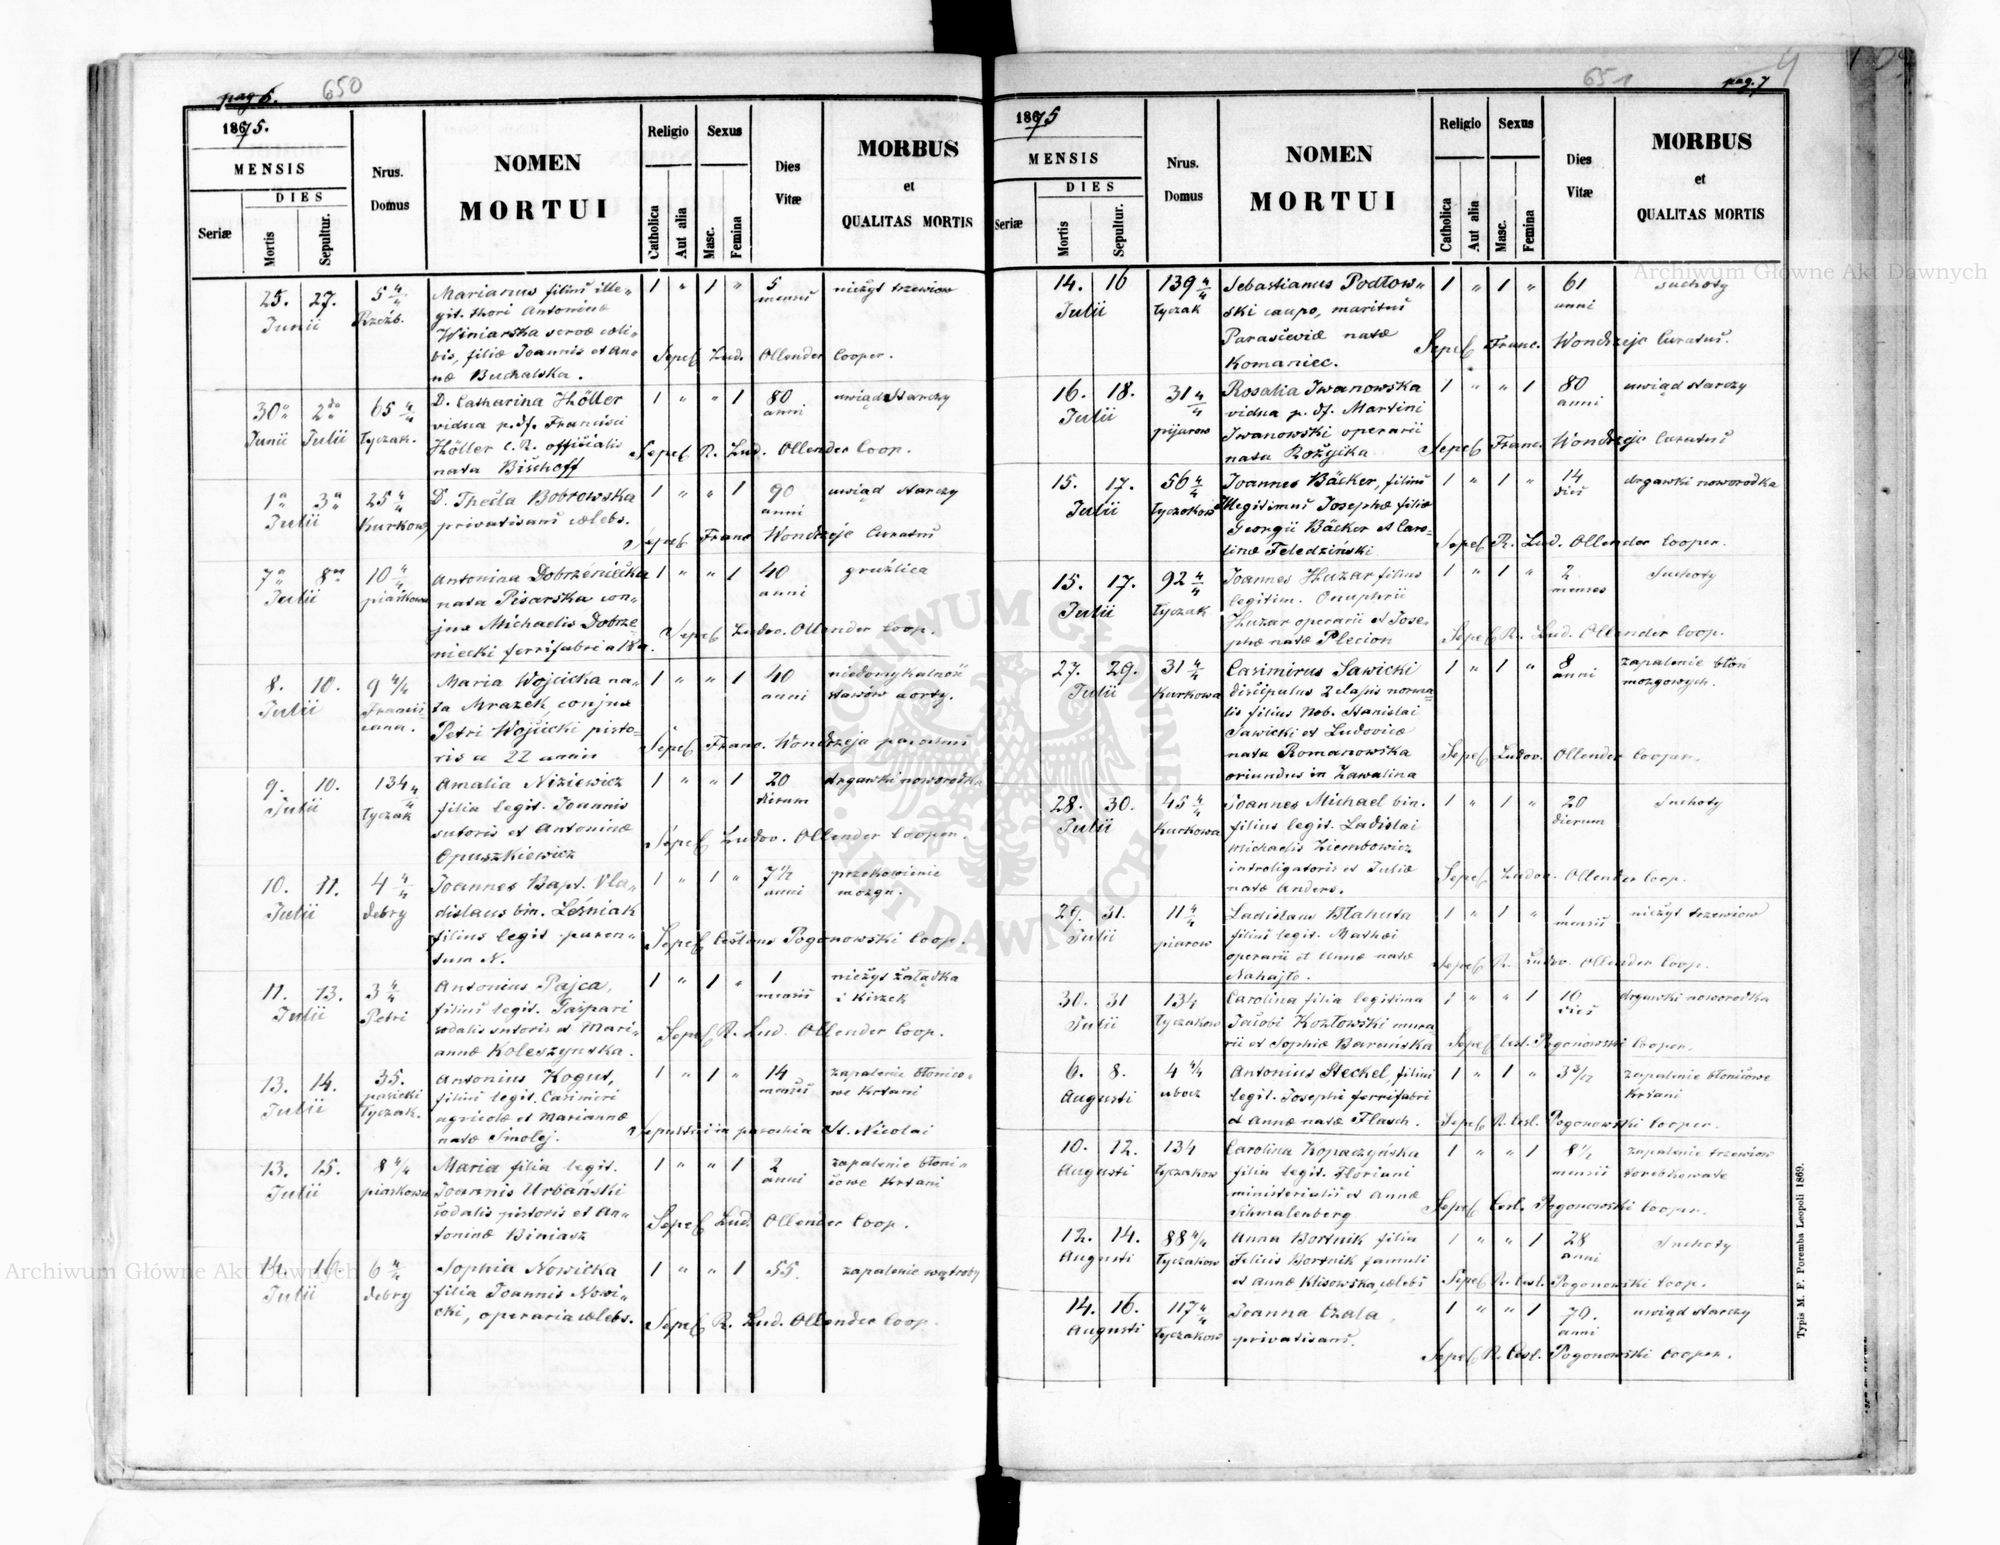 pag 6.
650
1875.
MENSIS
DIES
Seriæ
Mortis
Sepultur.
Nrus.
Domus
NOMEN
MORTUI
Religio
Catholica
Aut alia
Sexus
Masc.
Femina
Dies
Vitæ
MORBUS
et
QUALITAS MORTIS
25. 27. 5 4/4 Marianus filius ille- 1 " 1 " 5 nieżyt trzewiow
Junii Rzeźb. git. thori Antoninæ mensis
Winiarska servæ cæli-
bis, filiæ Joannis et An- Sepel. Lud. Ollender Cooper.
næ Buchalska.
30a 2da 65 4/4 D. Catharina Höller 1 " " 1 80 uwiąd starczy
Junii Julii Łyczak. vidua p. df. Francisci anni
Höller C. R. officialis Sepel. R. Lud. Ollender Coop.
nata Bischoff
1a 3a 25 4/4 D. Thecla Bobrowska 1 " " 1 90 uwiąd starczy
Julii Kurkow. privatisans cælebs. anni
Sepel. Franc Wondrzeje Curatus
7a 8a 10 4/4 Antonina Dobrzeniecka 1 " " 1 40 gruźlica
Julii piaskowa nata Pisarska con- anni
jux Michaelis Dobrze- Sepel. Ludov. Ollender Coop.
niecki ferrifabri
8. 10. 9 4/4 Maria Wojcicka na- 1 " " 1 40 niedomykalność
Julii Francis- ta Mrazek conjux anni stawów aorty.
cana. Petri Wojcicki pisto- Sepel. Franc. Wondrzeja parochus
ris a 22 annis
9. 10. 134 4/4 Amalia Niziewicz 1 " " 1 20 drgawki noworodka
Julii Łyczak filia legit. Joannis dierum
sutoris et Antoninæ Sepel. Ludov. Ollender Cooper.
Opuszkiewicz
10. 11. 4 4/4 Joannes Bapt. Vla- 1 " 1 " 7 1/2
Julii debry dislaus bin. Leśniak anni mozgu.
filius legit paren- Sepel. Ceslaus Pogonowski Coop.
tum N.
11. 13. 3 4/4 Antonius Pajca, 1 " 1 " 1 nieżyt żołądka
Julii Petri filius legit. Gaspari mensis i kiszek
sodalis sutoris et Mari- Sepel. R. Lud. Ollender Coop.
annæ Koleszynska.
13. 14. 35. Antonius Kogut, 1 " 1 " 14 zapalenie błonico-
Julii pasieki filius legit. Casimiri menses we krtani
Łyczak. agricolæ et Mariannæ Sepultus in parochia St. Nicolai
natæ Smolej.
13. 15. 8 4/4 Maria filia legit. 1 " " 1 2 zapalenie błoni-
Julii piaskowa Joannis Urbański anni cowe krtani
sodalis pistoris et An- Sepel. Lud. Ollender Coop.
toninæ Biniasz
14. 16. 6 4/4 Sophia Nowicka 1 " " 1 55. zapalenie wątroby
Julii debry filia Joannis Nowi-
cki, operaria cælebs. Sepel. R. Lud. Ollender Coop.
651
pag. 7
1875
MENSIS
DIES
Seriæ
Mortis
Sepultur.
Nrus.
Domus
NOMEN
MORTUI
Religio
Catholica
Aut alia
Sexus
Masc.
Femina
Dies
Vitæ
MORBUS
et
QUALITAS MORTIS
14. 16 139 4/4 Sebastianus Podłow- 1 " 1 " 61 suchoty
Julii Łyczak ski caupo, maritus anni
Parasceviæ natæ Sepel. Franc. Wondrzeje Curatus.
Komaniec.
16. 18. 31 4/4 Rosalia Iwanowska 1 " " 1 80 uwiąd starczy
Julii pijarow vidua p. df. Martini anni
Iwanowski operarii Sepel. Franc. Wondrzeje Curatus
nata Rożycka
15. 17. 56 4/4 Joannes Bäcker, filius 1 " 1 " 14 drgawki noworodka
Julii Łyczakow illegitimus Josephæ filiæ dies
Georgii Bäcker et Caro- Sepel. R. Lud. Ollender Cooper.
linæ Feledziński
15. 17. 92 4/4 Joannes Huzar filius 1 " 1 " 2 Suchoty
Julii Łyczak legitim. Onuphrii menses
Huzar operarii et Jose- Sepel. R. Lud. Ollender Coop.
phæ natæ Plecion
27. 29. 31 4/4 Casimirus Sawicki 1 " 1 " 8 zapalenie błon
Julii Kurkowa discipulus 2 clasis norma- anni mozgowych.
lis filius Nob. Stanislai
Sawicki et Ludovicæ
nata Romanowska Sepel. Ludov. Ollender Cooper.
oriundus in Zawalina
28. 30. 45 4/4 Joannes Michael bin. 1 " 1 " 20 Suchoty
Julii Kurkowa filius legit. Ladislai dierum
Michaelis Ziembowicz
introligatoris et Juliæ Sepel. Ludov. Ollender Coop.
natæ Anders.
29. 31. 11 4/4 Ladislaus Blahuta 1 " 1 " 1 nieżyt trzewiow
Julii piarow filius legit. Mathæi mensis
operarii et Annæ natæ Sepel. R. Ludov. Ollender Coop.
Nahajło.
30. 31 134 Carolina filia legitima 1 " " 1 16 drgawki noworodka
Julii Łyczakow Jacobi Kozłowski mura dies
rii et Sophiæ Barańska Sepel. Cesl. Pogonowski Cooper.
6. 8. 4 4/4 Antonius Steckel, filius 1 " 1 " 3 3/12 zapalenie błonicowe
Augusti ubocz legit. Josephi ferrifabri krtani
et Annæ natæ Flasch. Sepel. R. Cesl. Pogonowski Cooper.
10. 12. 134 Carolina Kopaczyńska 1 " " 1 8 1/2 zapalenie trzewiow
Augusti Łyczakow filia legit. Floriani mensis torebkowate
ministerialis et Annæ Sepel. Cesl. Pogonowski Cooper.
Schmalenberg
12. 14. 88 4/4 Anna Bortnik filia 1 " " 1 28 Suchoty
Augusti Łyczakow Felicis Bortnik famuli anni
et Annæ Klisowska, cælebs Sepel. R. Cesl. Pogonowski Coop.
14. 16. 117 4/4 Joanna Czala, 1 " " 1 70. uwiąd starczy
Augusti Łyczakow privatisans. anni
Sepel. R. Cesl. Pogonowski Cooper.
Typis M. F. Poremba Leopoli 1869.
Archiwum Główne Akt Dawnych
Archiwum Główne Akt Dawnych
ARCHIWUM GŁÓWNE AKT DAWNYCH